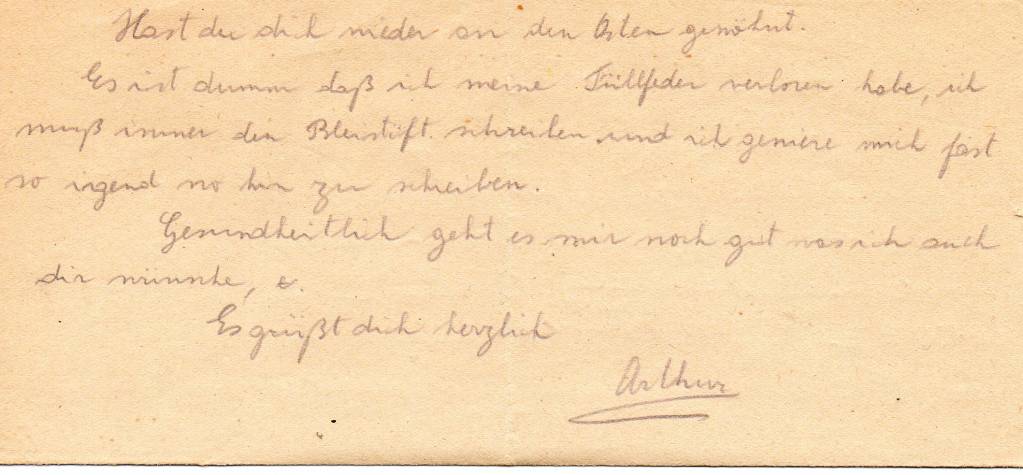 Hast du dich wieder an den Osten gewöhnt.
Es ist dumm daß ich meine Füllfeder verloren habe, ich
muß immer den Bleistift schreiben und ich geniere mich fast
so irgend wo hin zu schreiben.
Gesundheitlich geht es mir noch gut was ich auch
dir wünsche,
Es grüßt dich herzlich
Arthur